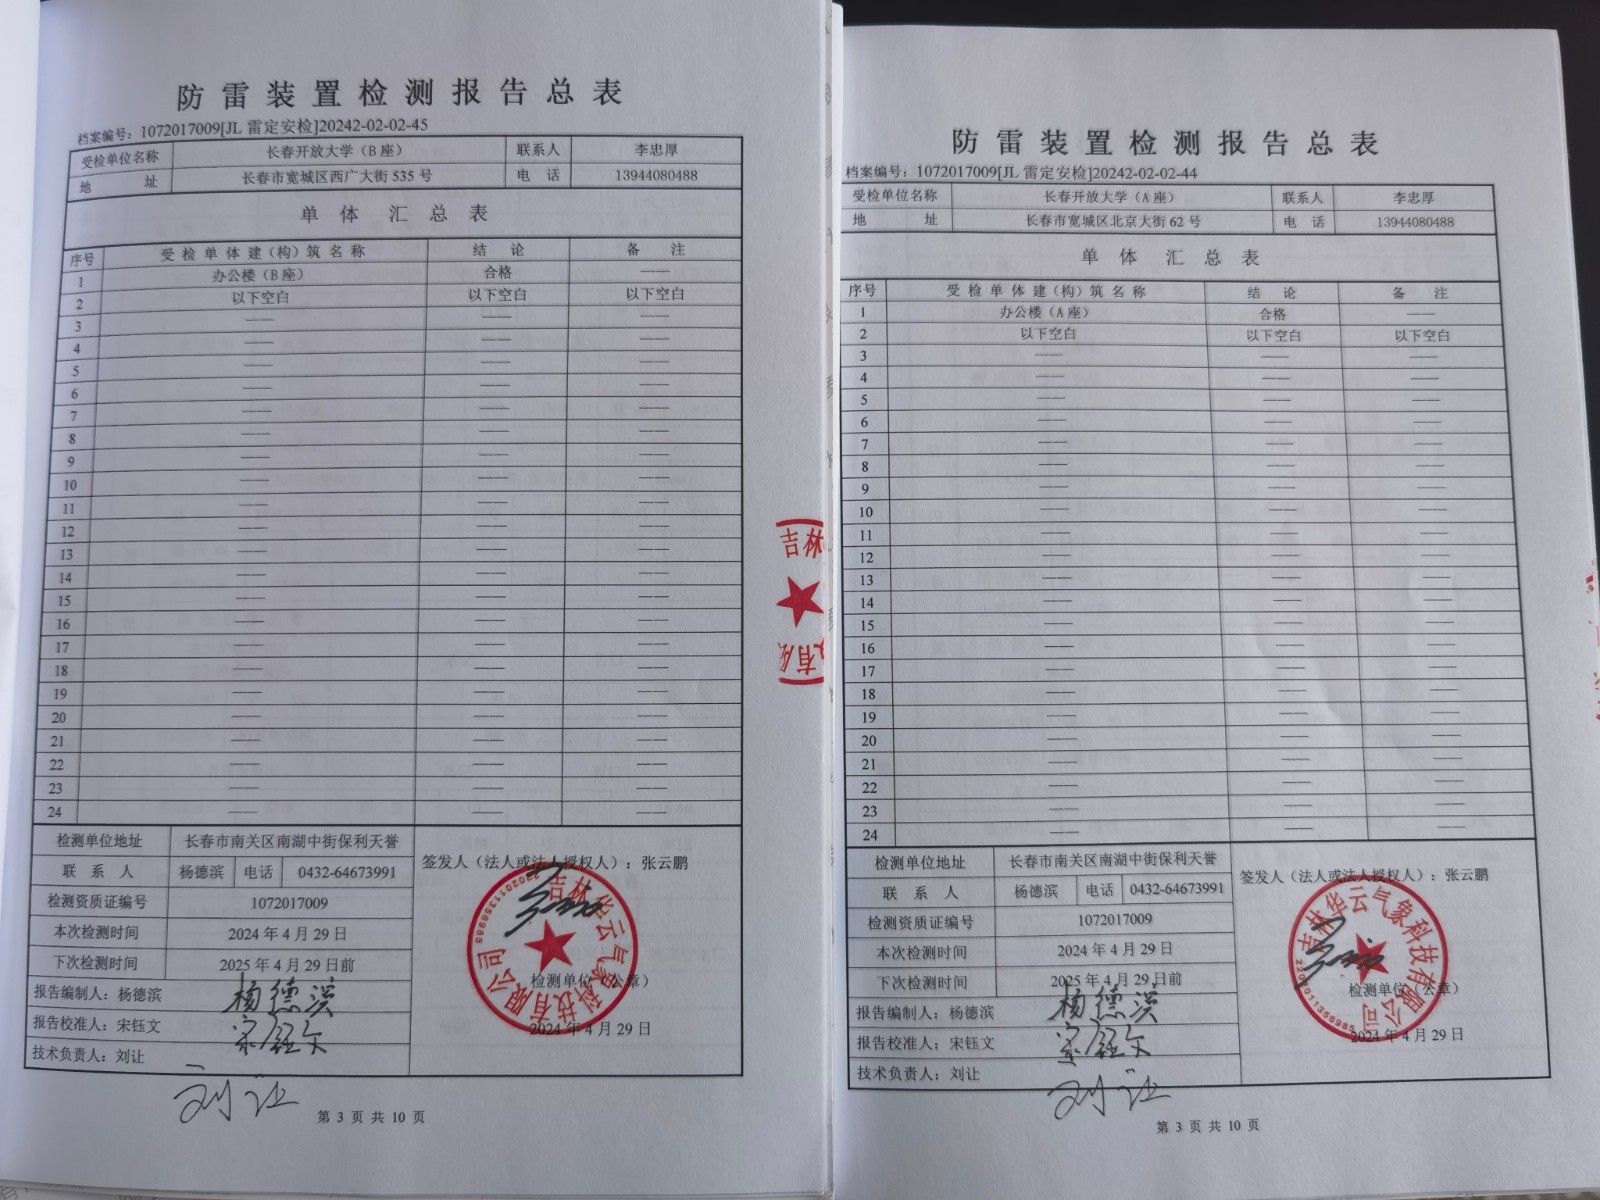 防雷装置检测报告总表
档案编号：1072017009[JL 雷定安检]20242-02-02-45
受检单位名称 长春开放大学（B 座） 联系人 李忠厚
地 址 长春市宽城区西广大街 535 号 电 话 13944080488
单 体 汇 总 表
序号 受 检 单 体 建（构）筑 名 称 结 论 备 注
1 办公楼（B 座） 合格 ——
2 以下空白 以下空白 以下空白
3 —— —— ——
4 —— —— ——
5 —— —— ——
6 —— —— ——
7 —— —— ——
8 —— —— ——
9 —— —— ——
10 —— —— ——
11 —— —— ——
12 —— —— ——
13 —— —— ——
14 —— —— ——
15 —— —— ——
16 —— —— ——
17 —— —— ——
18 —— —— ——
19 —— —— ——
20 —— —— ——
21 —— —— ——
22 —— —— ——
23 —— —— ——
24 —— —— ——
检测单位地址 长春市南关区南湖中街保利天誉
联 系 人 杨德滨 电话 0432-64673991
检测资质证编号 1072017009
本次检测时间 2024 年 4 月 29 日
下次检测时间 2025 年 4 月 29 日前
报告编制人：杨德滨 杨德滨
报告校准人：宋钰文 宋钰文
技术负责人：刘让 刘让
签发人（法人或法人授权人）：张云鹏
吉林华云气象科技有限公司
2202011356985
检测单位（公章）
2024 年 4 月 29 日
第 3 页 共 10 页
吉林
有限
防雷装置检测报告总表
档案编号：1072017009[JL 雷定安检]20242-02-02-44
受检单位名称 长春开放大学（A 座） 联系人 李忠厚
地 址 长春市宽城区北京大街 62 号 电 话 13944080488
单 体 汇 总 表
序号 受 检 单 体 建（构）筑 名 称 结 论 备 注
1 办公楼（A 座） 合格 ——
2 以下空白 以下空白 以下空白
3 —— —— ——
4 —— —— ——
5 —— —— ——
6 —— —— ——
7 —— —— ——
8 —— —— ——
9 —— —— ——
10 —— —— ——
11 —— —— ——
12 —— —— ——
13 —— —— ——
14 —— —— ——
15 —— —— ——
16 —— —— ——
17 —— —— ——
18 —— —— ——
19 —— —— ——
20 —— —— ——
21 —— —— ——
22 —— —— ——
23 —— —— ——
24 —— —— ——
检测单位地址 长春市南关区南湖中街保利天誉
联 系 人 杨德滨 电话 0432-64673991
检测资质证编号 1072017009
本次检测时间 2024 年 4 月 29 日
下次检测时间 2025 年 4 月 29 日前
报告编制人：杨德滨 杨德滨
报告校准人：宋钰文 宋钰文
技术负责人：刘让 刘让
签发人（法人或法人授权人）：张云鹏
吉林华云气象科技有限公司
2202011356985
检测单位（公章）
2024 年 4 月 29 日
第 3 页 共 10 页